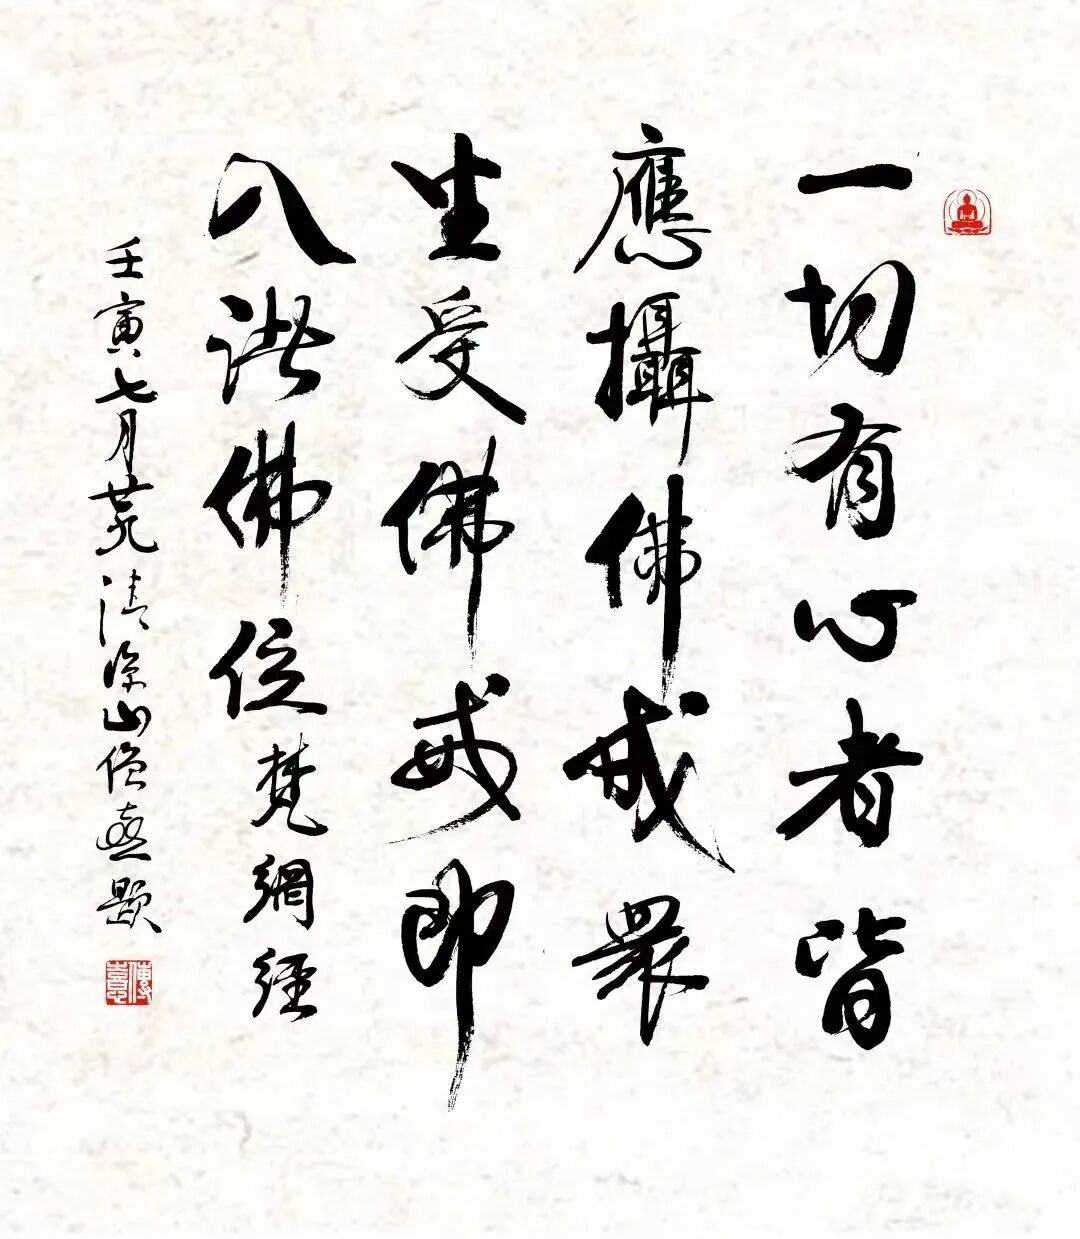 一切有心者皆
應攝佛戒眾
生受佛戒即
入諸佛位梵網經
壬寅七月清涼山僧題